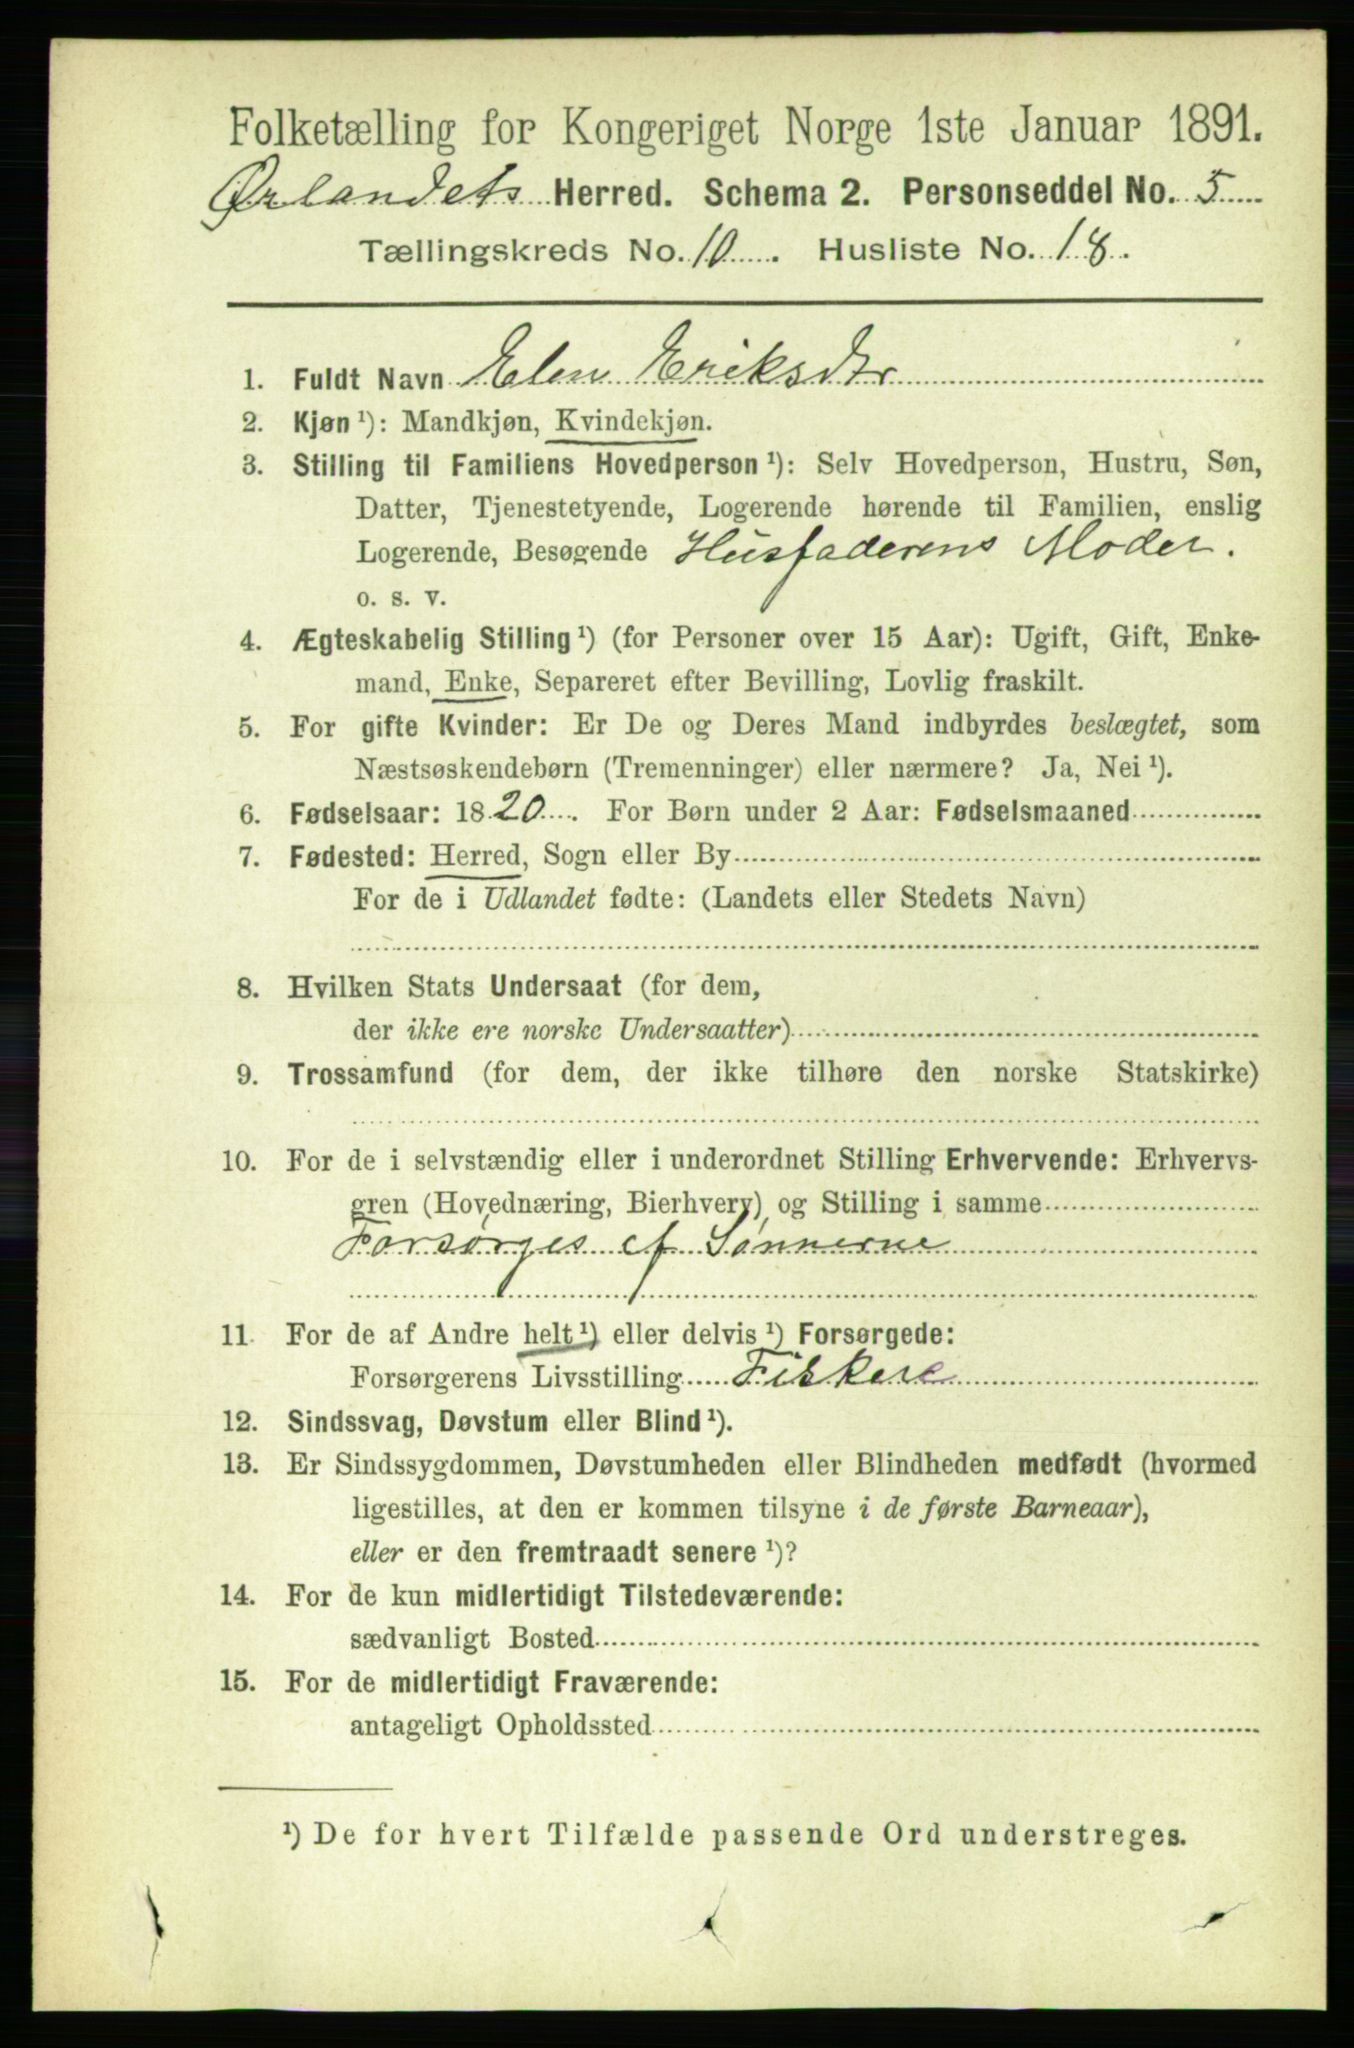 Folketælling for Kongeriget Norge 1ste Januar 1891.
Ørlandets Herred. Schema 2. Personseddel No. 5
Tællingskreds No. 10. Husliste No. 18.
1. Fuldt Navn Elen Eriksdtr
2. Kjøn ¹): Mandkjøn, Kvindekjøn.
3. Stilling til Familiens Hovedperson ¹): Selv Hovedperson, Hustru, Søn,
Datter, Tjenestetyende, Logerende hørende til Familien, enslig
Logerende, Besøgende Husfaderens Moder.
o. s. v.
4. Ægteskabelig Stilling ¹) (for Personer over 15 Aar): Ugift, Gift, Enke-
mand, Enke, Separeret efter Bevilling, Lovlig fraskilt.
5. For gifte Kvinder: Er De og Deres Mand indbyrdes beslægtet, som
Næstsøskendebørn (Tremenninger) eller nærmere? Ja, Nei ¹).
6. Fødselsaar: 1820. For Børn under 2 Aar: Fødselsmaaned
7. Fødested: Herred, Sogn eller By
For de i Udlandet fødte: (Landets eller Stedets Navn)
8. Hvilken Stats Undersaat (for dem,
der ikke ere norske Undersaatter)
9. Trossamfund (for dem, der ikke tilhøre den norske Statskirke)
10. For de i selvstændig eller i underordnet Stilling Erhvervende: Erhvervs-
gren (Hovednæring, Bierhverv) og Stilling i samme
Forsørges af Sønnerne
11. For de af Andre helt ¹) eller delvis ¹) Forsørgede:
Forsørgerens Livsstilling Fiskere
12. Sindssvag, Døvstum eller Blind ¹).
13. Er Sindssygdommen, Døvstumheden eller Blindheden medfødt (hvormed
ligestilles, at den er kommen tilsyne i de første Barneaar),
eller er den fremtraadt senere ¹)?
14. For de kun midlertidigt Tilstedeværende:
sædvanligt Bosted
15. For de midlertidigt Fraværende:
antageligt Opholdssted
¹) De for hvert Tilfælde passende Ord understreges.